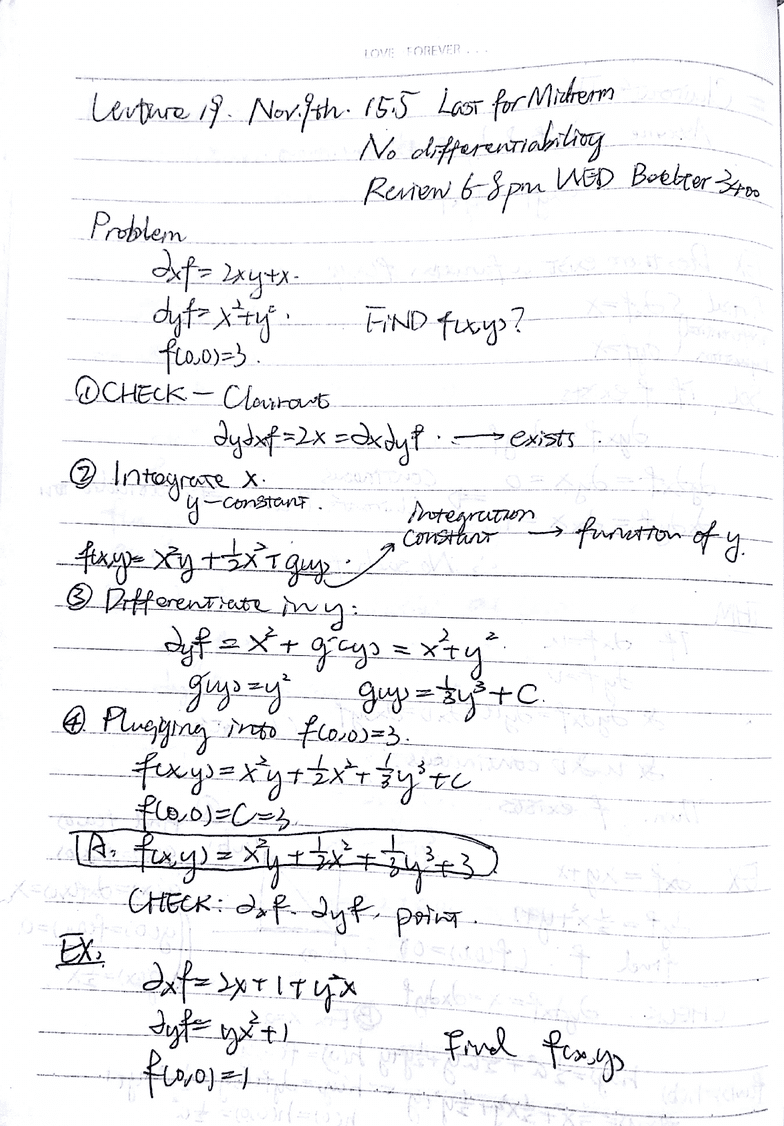 LOVE FOREVER...
Lecture 19. Nov.9th. 15.5 Last for Midterm
No differentiability
Review 6-8pm WED Boelter 3400
Problem
∂xf = 2xy+x.
∂yf = x²+y².
FIND f(x,y)?
f(0,0)=3.
① CHECK – Clairaut
∂y∂xf = 2x = ∂x∂yf. → exists.
② Integrate x.
y – constant.
Integration
constant → function of y.
f(x,y) = x²y + ½x² + g(y).
③ Differentiate in y:
∂yf = x² + g'(y) = x²+y².
g'(y) = y² g(y) = ⅓y³ + C.
④ Plugging into f(0,0)=3.
f(x,y) = x²y + ½x² + ⅓y³ + C
f(0,0)=C=3
A: f(x,y) = x²y + ½x² + ⅓y³ + 3
CHECK: ∂xf. ∂yf. point.
EX:
∂xf = 2x+1+y²x
∂yf = yx²+1
Find f(x,y)
f(0,0)=1